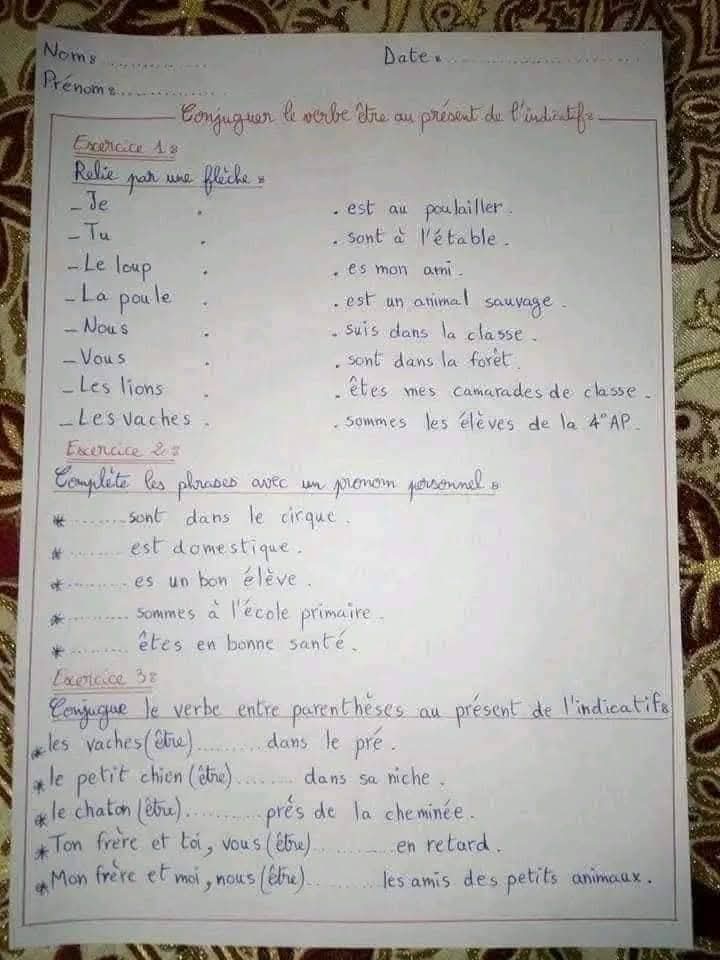 Nom: .............. Date: ..............................
Prénom: ..............
Conjuguer le verbe être au présent de l'indicatif:
Exercice 1:
Relie par une flèche:
- Je . . est au poulailler.
- Tu . . sont à l'étable.
- Le loup . . es mon ami.
- La poule . . est un animal sauvage.
- Nous . . suis dans la classe.
- Vous . . sont dans la forêt.
- Les lions . . êtes mes camarades de classe.
- Les vaches . . sommes les élèves de la 4° AP.
Exercice 2:
Complète les phrases avec un pronom personnel:
* ......... sont dans le cirque.
* ......... est domestique.
* ......... es un bon élève.
* ......... sommes à l'école primaire.
* ......... êtes en bonne santé.
Exercice 3:
Conjugue le verbe entre parenthèses au présent de l'indicatif:
* les vaches (être) ......... dans le pré.
* le petit chien (être) ......... dans sa niche.
* le chaton (être) ......... prés de la cheminée.
* Ton frère et toi, vous (être) ......... en retard.
* Mon frère et moi, nous (être) ......... les amis des petits animaux.